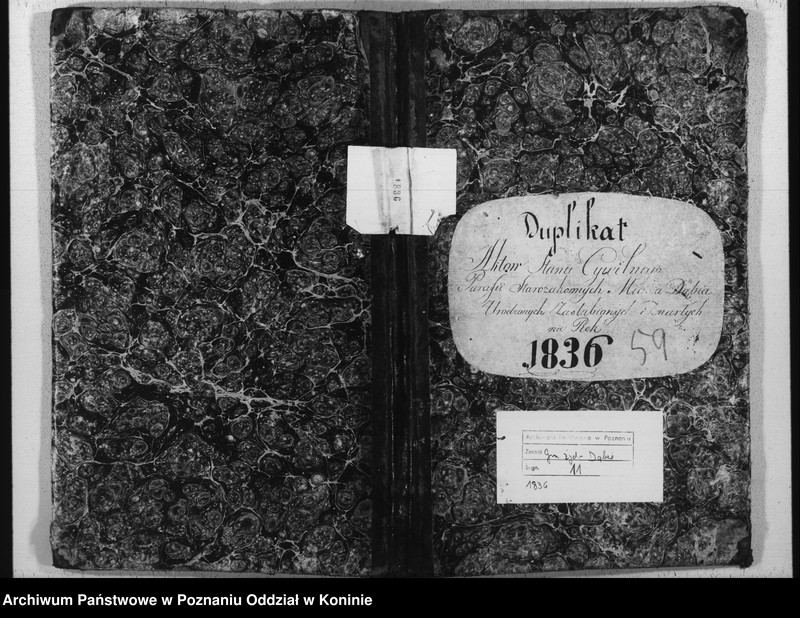 1836
Duplikat
Aktów Stanu Cywilnego
Parafii Starozakonnych Miasta Dąbia
Urodzonych Zaślubionych i Zmarłych
na Rok
1836 59
Archiwum Państwowe w Poznaniu
Zespół Gm. żyd. Dąbie
Sygn. 11
1836
Archiwum Państwowe w Poznaniu Oddział w Koninie